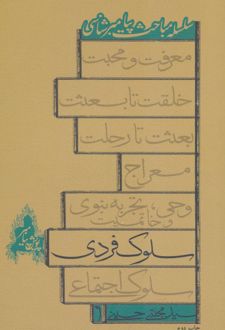 سلسله مباحث پیامبرشناسی
معرفت و محبت
خلقت تا بعثت
بعثت تا رحلت
معراج
وحی، تجربه نبوی
و خاتمیت
سلوک فردی
سلوک اجتماعی
سید مجتبی
چاپ دوم